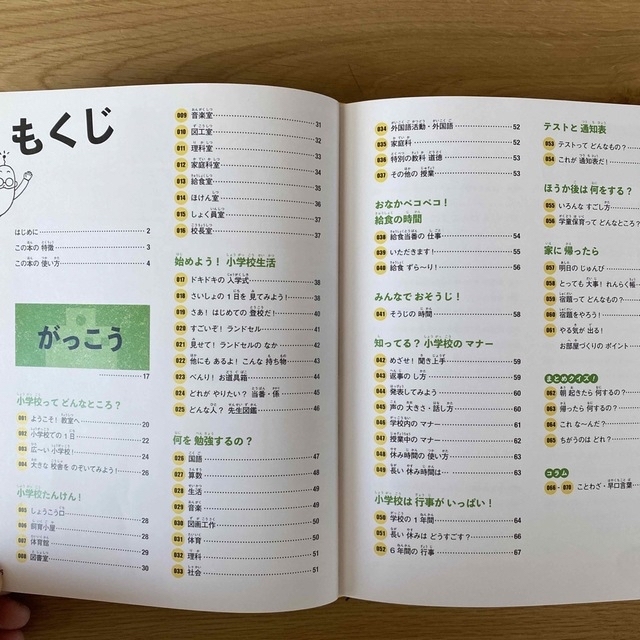 もくじ
はじめに 2
この本の 特徴 3
この本の 使い方 4
がっこう
17
小学校って どんなところ？
001 ようこそ！ 教室へ 20
002 小学校での 1日 22
003 広〜い 小学校！ 24
004 大きな 校舎を のぞいてみよう！ 26
小学校たんけん！
005 しょうこう口 28
006 飼育小屋 28
007 体育館 29
008 図書室 30
009 音楽室 31
010 図工室 32
011 理科室 33
012 家庭科室 34
013 給食室 35
014 ほけん室 36
015 しょく員室 37
016 校長室 37
始めよう！ 小学校生活
017 ドキドキの 入学式 38
018 さいしょの 1日を 見てみよう！ 38
019 さぁ！ はじめての 登校だ！ 40
020 すごいぞ！ ランドセル 41
021 見せて！ ランドセルの なか 42
022 他にも あるよ！ こんな 持ち物 43
023 べんり！ お道具箱 44
024 どれが やりたい？ 当番・係 45
025 どんな人？ 先生図鑑 46
何を 勉強するの？
026 国語 47
027 算数 48
028 生活 49
029 音楽 49
030 図画工作 50
031 体育 50
032 理科 51
033 社会 51
034 外国語活動・外国語 52
035 家庭科 52
036 特別の教科 道徳 53
037 その他の 授業 53
おなかペコペコ！
給食の時間
038 給食当番の 仕事 54
039 いただきます！ 55
040 給食 ずら〜り！ 56
みんなで おそうじ！
041 そうじの 時間 58
知ってる？ 小学校の マナー
042 めざせ！ 聞き上手 59
043 返事の し方 59
044 発表してみよう 60
045 声の 大きさ・話し方 60
046 学校内の マナー 61
047 授業中の マナー 62
048 休み時間の 使い方 63
049 長い 休み時間は… 63
小学校は 行事が いっぱい！
050 学校の 1年間 64
051 長い 休みは どうすごす？ 66
052 6年間の 行事 67
テストと 通知表
053 テストって どんなもの？
054 これが 通知表だ！
ほうか後は 何をする？
055 いろんな すごし方
056 学童保育って どんなところ
家に 帰ったら
057 明日の じゅんび
058 とっても 大事！ れんらく帳
059 宿題って どんなもの？
060 宿題をやろう！
061 やる気が 出る！
お部屋づくりの ポイント
まとめクイズ！
062 朝 起きたら 何するの？
063 帰ったら 何するの？
064 これ な〜んだ？
065 ちがうのは どれ？
コラム
066 - 070 ことわざ・早口言葉